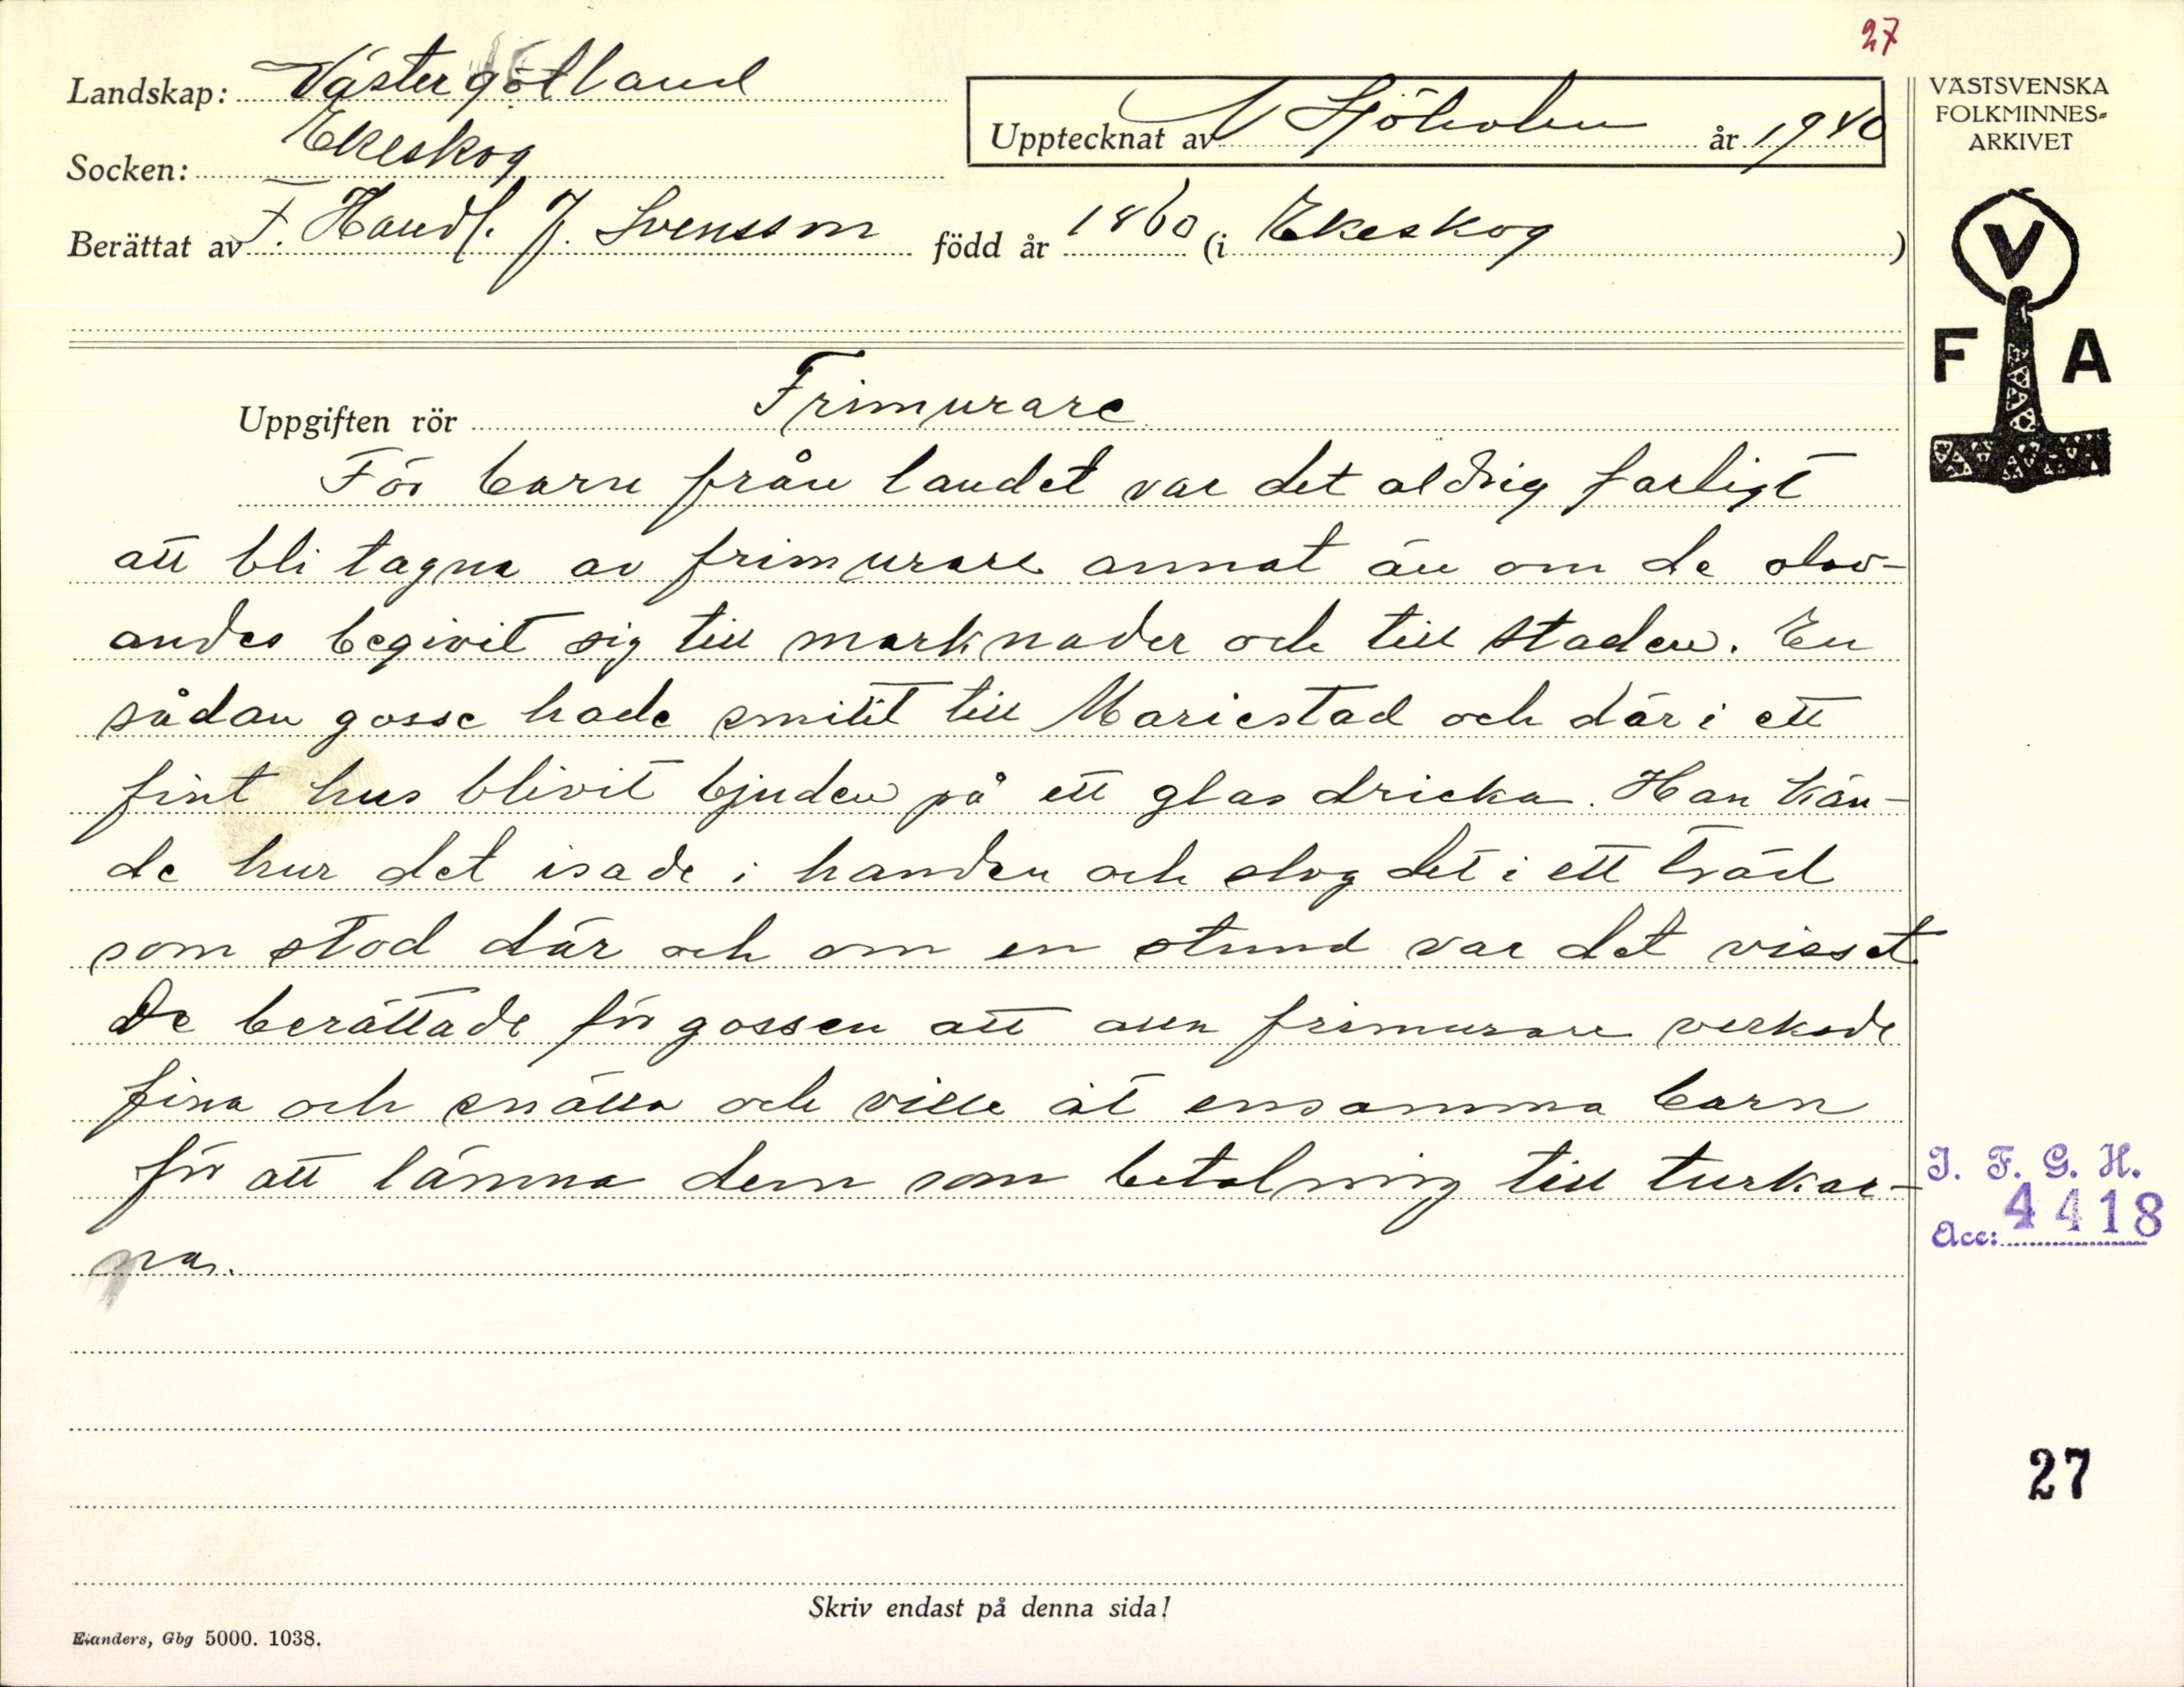 27
Landskap: Västergötland
Socken: Ekeskog
Upptecknat av N Sjöholm år 1940
Berättat av F. Handl. J. Svensson född år 1860 (i Ekeskog )
VÄSTSVENSKA
FOLKMINNES-
ARKIVET
V
F A
Uppgiften rör Frimurare
För barn från landet var det aldrig farligt
att bli tagna av frimurare annat än om de olov-
andes begivit sig till marknader och till staden. En
sådan gosse hade smitit till Mariestad och där i ett
fint hus blivit bjuden på ett glas dricka. Han kän-
de hur det isade i handen och slog det i ett träd
som stod där och om en stund var det visset.
De berättade för gossen att frimurare verkade
fina och snälla och ville åt ensamma barn
för att lämna dem som betalning till turkar-
na.
I. F. G. H.
Acc: 4418
27
Skriv endast på denna sida!
Elanders, Gbg 5000. 1038.